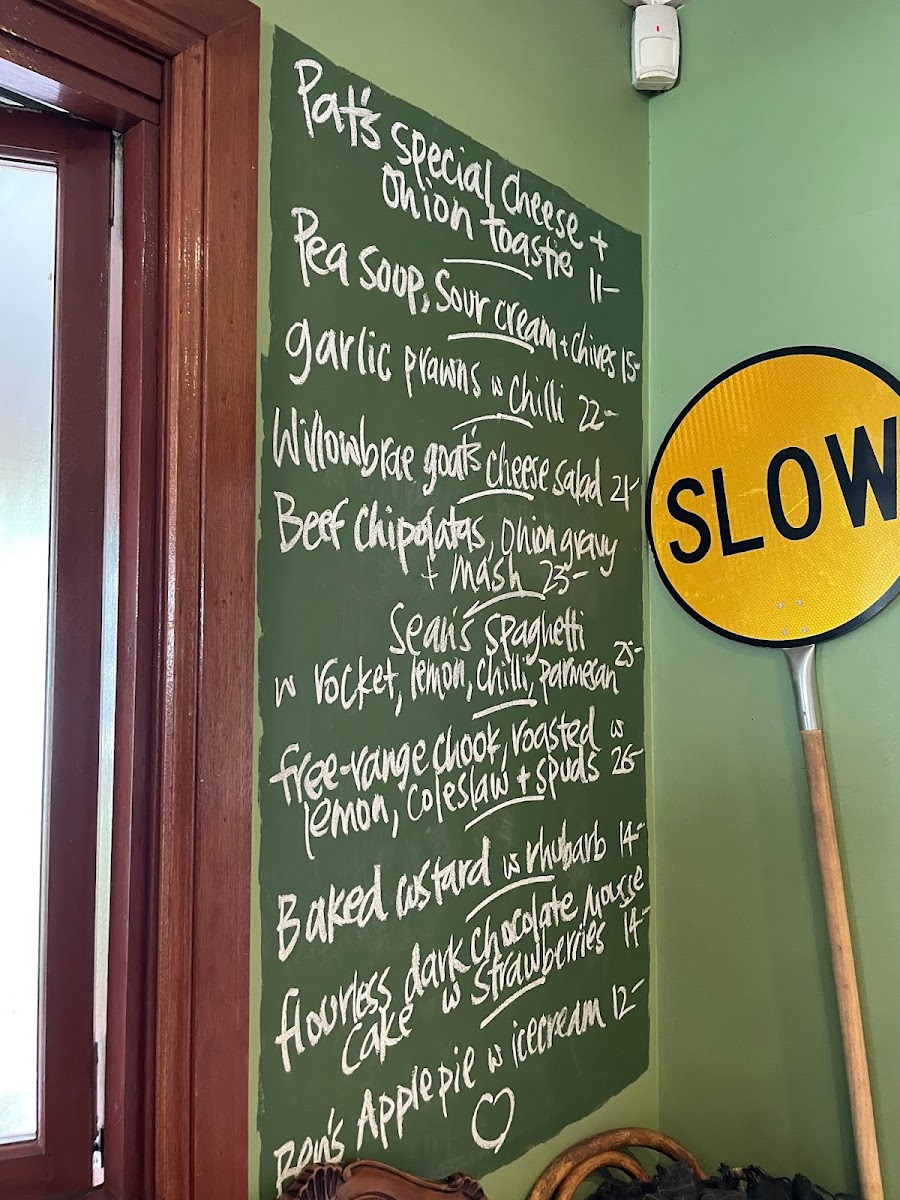 Pat's special cheese +
onion toastie 11-
Pea soup, sour cream + chives 15-
garlic prawns w chilli 22-
Willowbrae goat's cheese salad 21-
Beef chipolatas, onion gravy
+ mash 23-
Sean's spaghetti
w rocket, lemon, chilli, parmesan 25-
free-range chook, roasted w
lemon, coleslaw + spuds 26-
Baked custard w rhubarb 14-
flourless dark chocolate mousse
cake w strawberries 14-
Ben's Apple pie w icecream 12-
SLOW